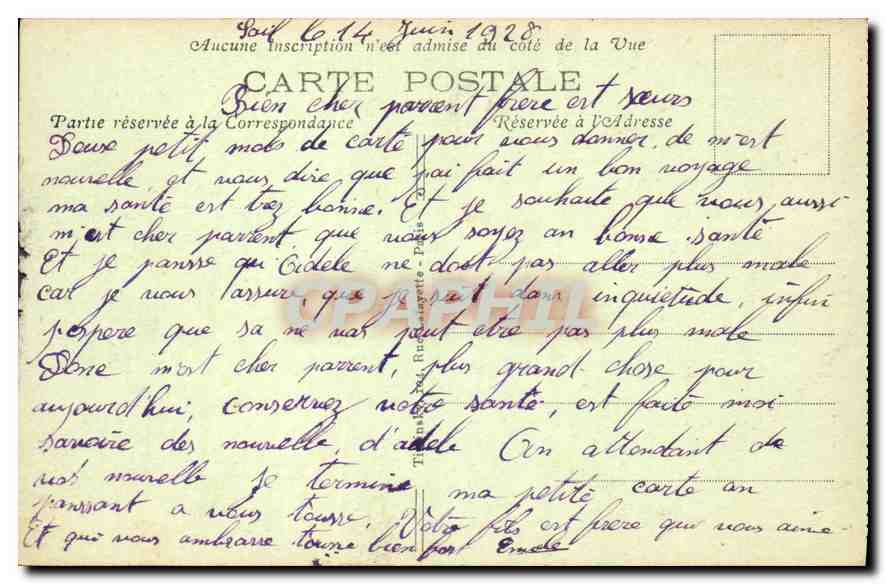 Sail le 14 Juin 1928
Aucune inscription n'est admise du côté de la Vue
CARTE POSTALE
Bien cher parrent frere est sœurs
Partie réservée à la Correspondance
Réservée à l'Adresse
Deuse petit mots de carte pour vous donner de m'est
nouvelle et vous dire que j'ai fait un bon voyage
ma santé est trez bonne. Et je souhaite que vous aussi
m'est cher parrent que vous soyez an bonse santé
Et je pansse qu' ne doot pas aller plus male
car je vous assure, que je suit dans inquietude, infin
j'espere que sa ne vas peut etre pas plus male
Donc m'est cher parrent, plus grand chose pour
aujourd'hui, conservez votre santé, est faite moi
savoire des nouvelle, d'adele An attendant de
vos nouvelle je termine ma petite carte an
panssant a vous tousse. Votre fils est frere qui vous aime
Et qui vous ambrasse tousse bien fort
104 Rue Lafayette - Paris
CPAPHIL